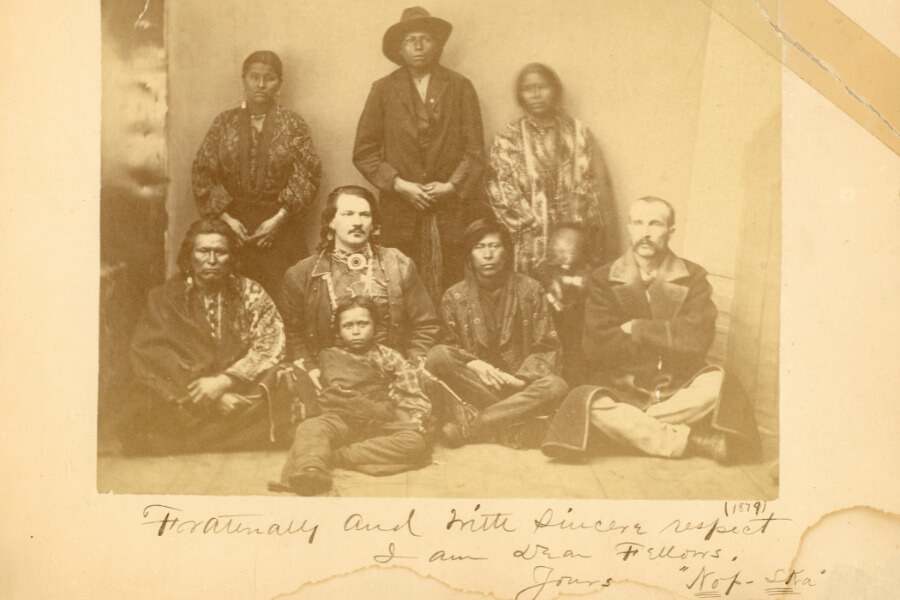 (1879)
Fratenally and With Sincere respect
I am Dear Fellows.
Yours "Nop-Ska"